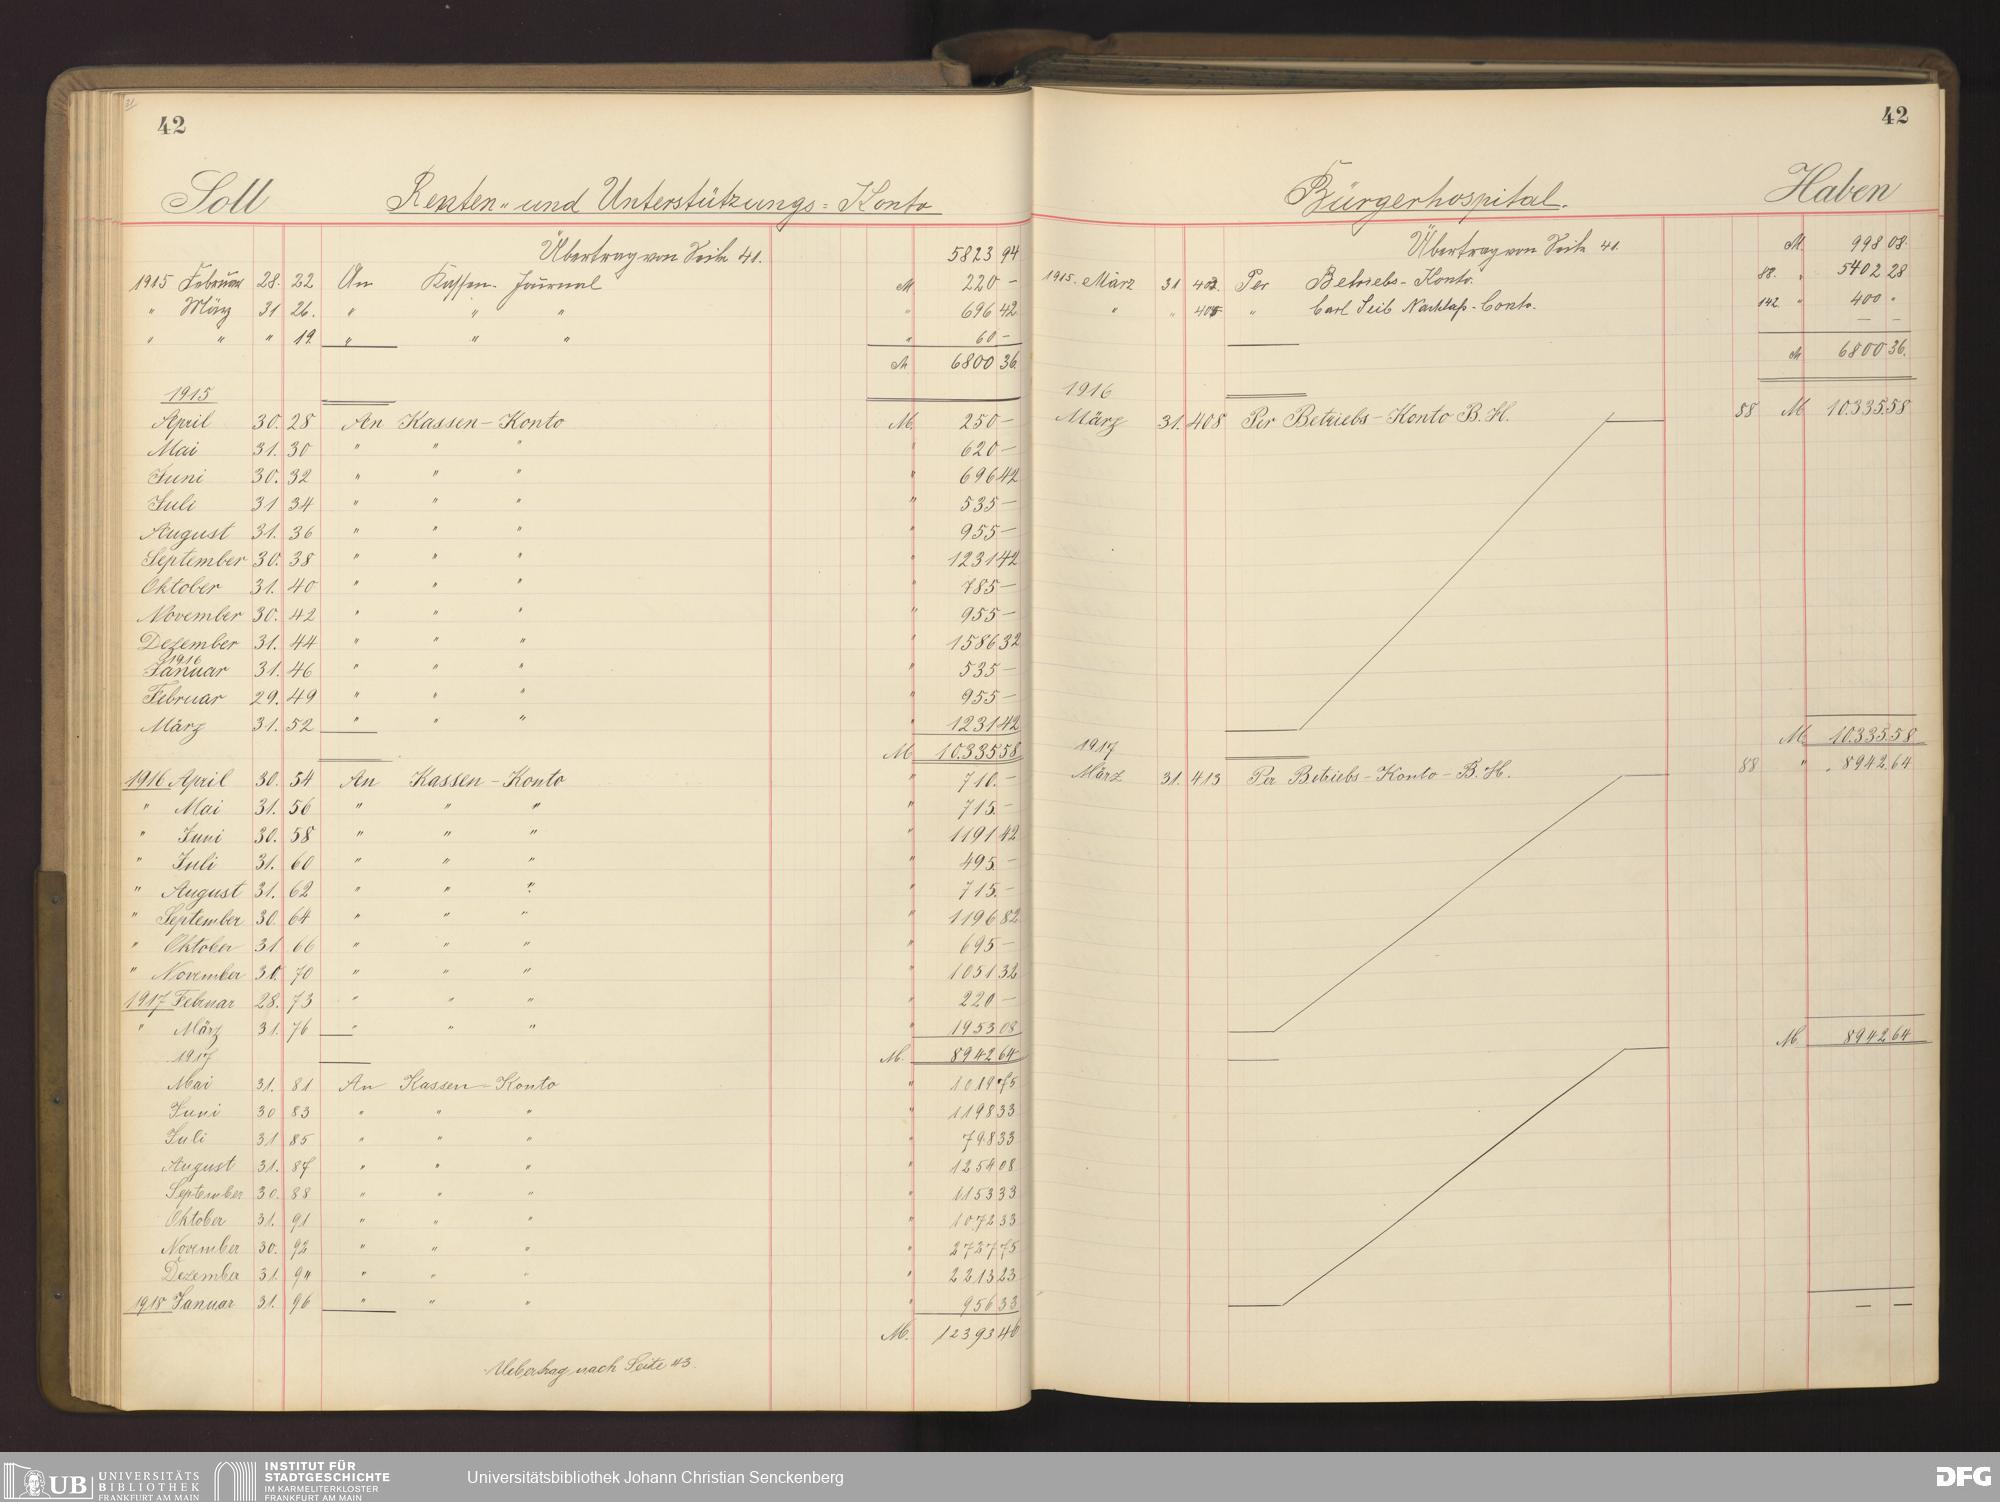 42
Soll Renten- und Unterstützungs-Konto
Übertrag von Seite 41. 5823 94
1915 Februar 28. 22 An Kassen-Journal M 220 —
" März 31 26. " " " " 696 42
" " " 19. " " " " 60 —
M 6800 36.
1915
April 30. 28 An Kassen-Konto M. 250 —
Mai 31. 30 " " " " 620 —
Juni 30. 32 " " " " 696 42
Juli 31 34 " " " " 535 —
August 31. 36 " " " " 955 —
September 30. 38 " " " " 1231 42
Oktober 31. 40 " " " " 785 —
November 30. 42 " " " " 955 —
Dezember 31. 44 " " " " 1586 32
1916
Januar 31. 46 " " " " 535 —
Februar 29. 49 " " " " 955 —
März 31. 52 " " " " 1231 42
M 10.335 58
1916 April 30. 54 An Kassen-Konto " 710. —
" Mai 31. 56 " " " " 715. —
" Juni 30. 58 " " " " 1191 42
" Juli 31. 60 " " " " 495. —
" August 31. 62 " " " " 715. —
" September 30. 64 " " " " 1196 82
" Oktober 31 66 " " " " 695 —
" November 30. 70 " " " " 1051 32
1917 Februar 28. 73 " " " " 220 —
" März 31. 76 " " " " 1953 08
1917 M. 8942 64
Mai 31. 81 An Kassen-Konto " 1019 75
Juni 30 83 " " " " 1198 33
Juli 31 85 " " " " 798 33
August 31. 87 " " " " 1254 08
September 30. 88 " " " " 1153 33
Oktober 31. 91 " " " " 1072 33
November 30. 92 " " " " 2727 75
Dezember 31. 94 " " " " 2213 23
1918 Januar 31. 96 " " " " 956 33
M. 12393 46
Uebertrag nach Seite 43.
42
Bürgerhospital. Haben
Übertrag von Seite 41. M 998 08.
1915. März 31 402. Per Betriebs-Konto. 88. " 5402 28
" " 405 " Carl Seib Nachlaß-Conto. 142 " 400 "
— —
M 6800 36.
1916
März 31. 408 Per Betriebs-Konto B.H. 88 M 10.335.58
M 10.335.58
1917
März 31. 413 Per Betriebs-Konto-B.H. 88 " 8942.64
M. 8942 64
— —
UB UNIVERSITÄTS
BIBLIOTHEK
FRANKFURT AM MAIN
INSTITUT FÜR
STADTGESCHICHTE
IM KARMELITERKLOSTER
FRANKFURT AM MAIN
Universitätsbibliothek Johann Christian Senckenberg
DFG